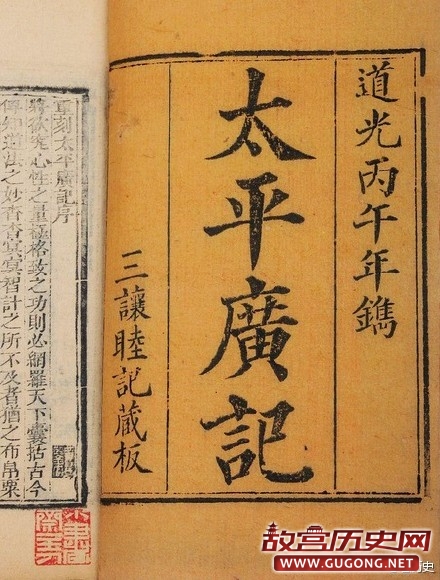 道光丙午年鐫
太平廣記
三讓睦記藏板
重刻太平廣記序
將欲究心性之量極格致之功則必網羅天下囊括古今
俾知道法之妙杳杳冥冥智計之所不及者猶之布帛粟
故宫历史网
WWW.GUGONG.NET
史